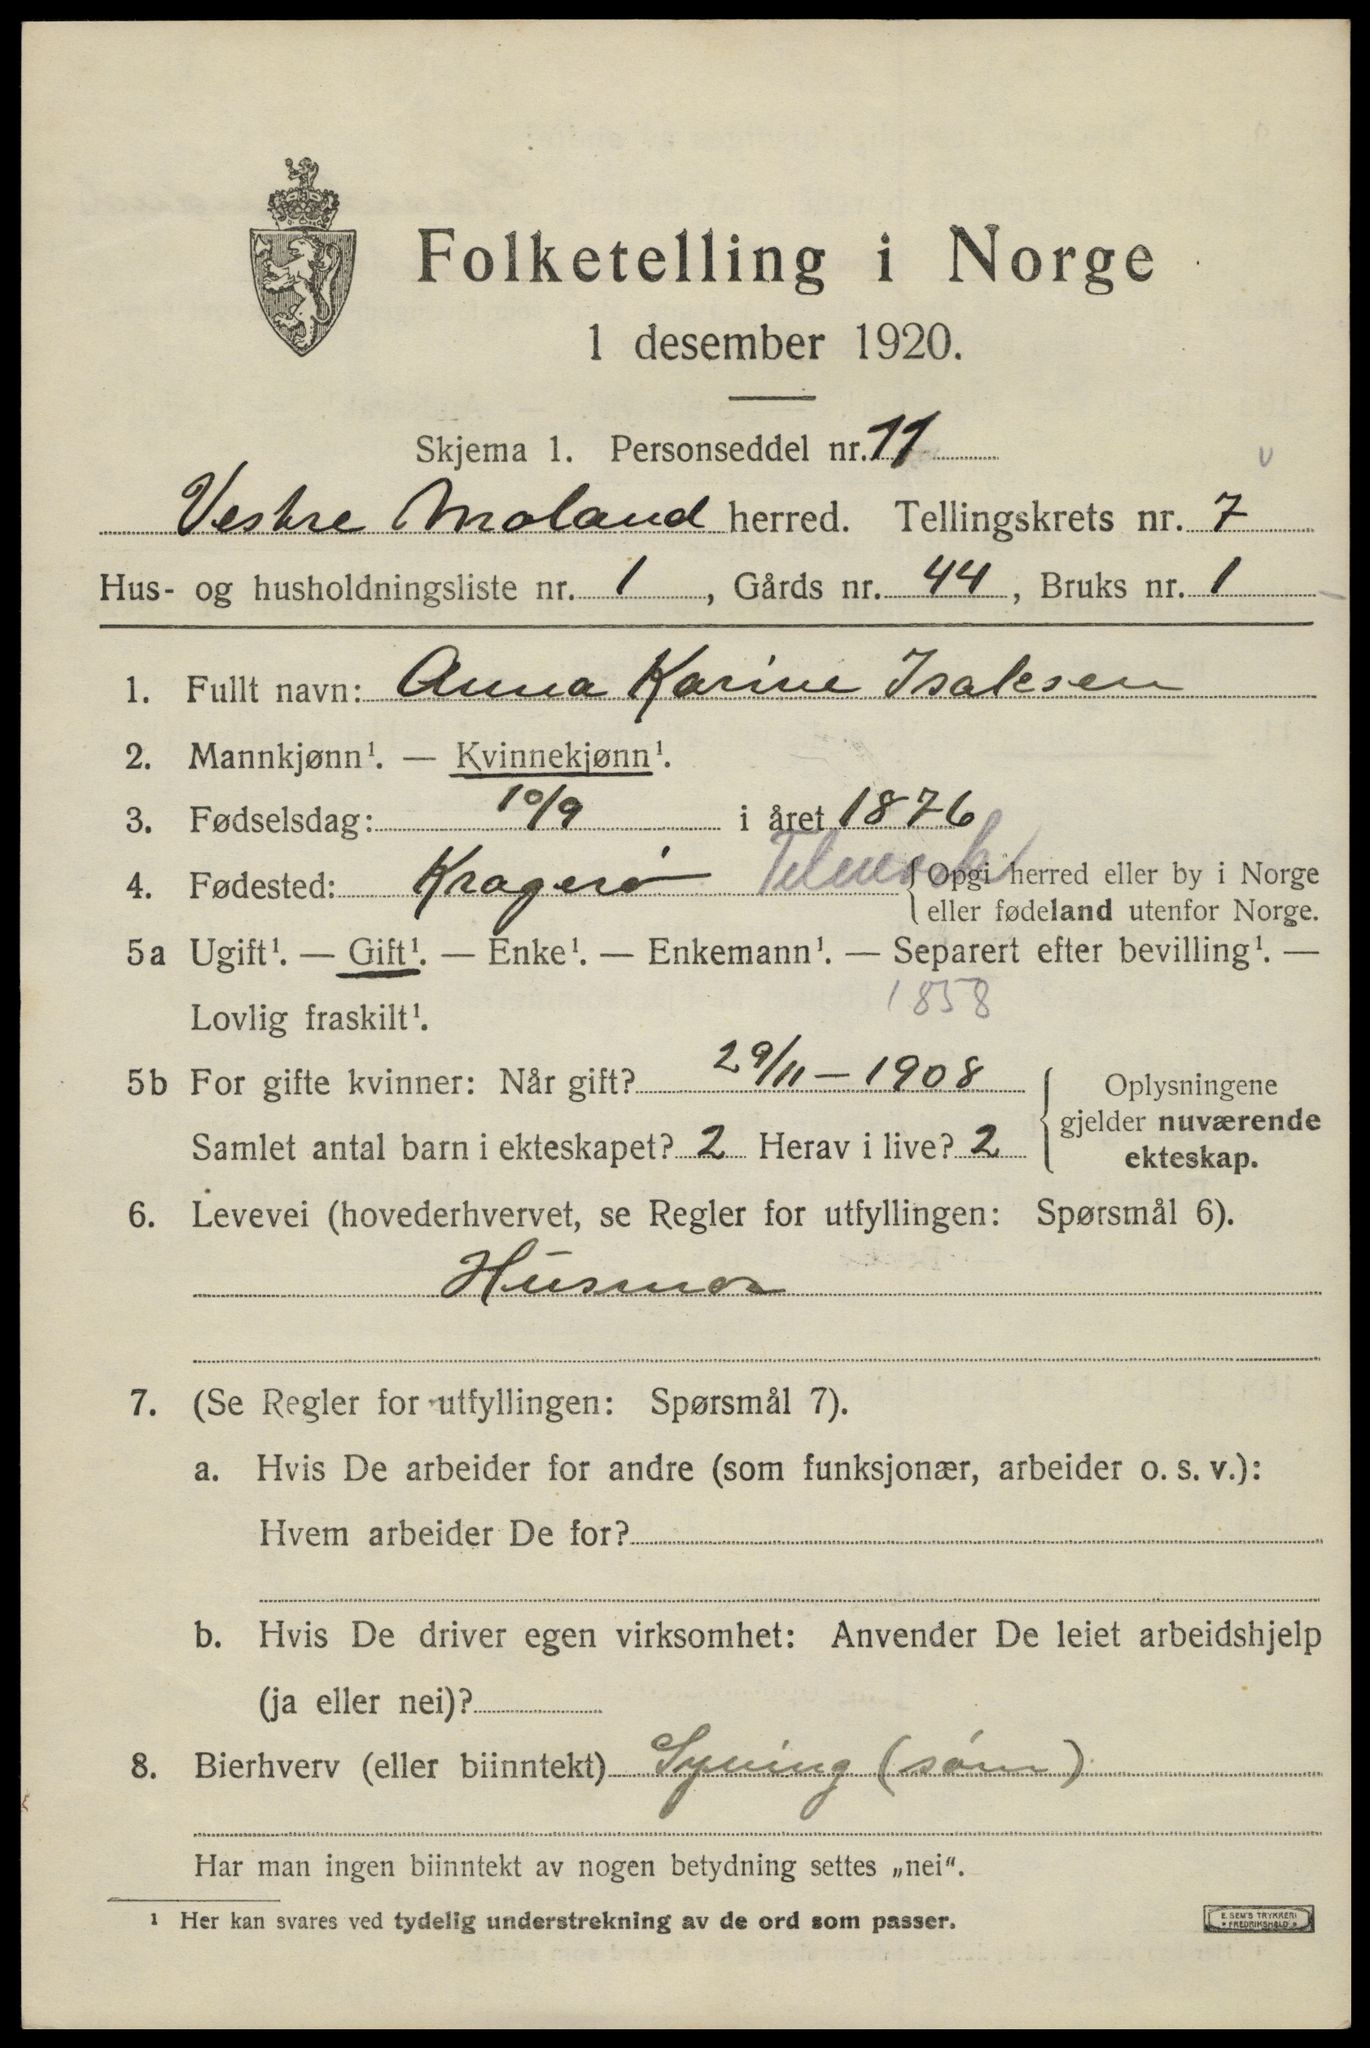 Folketelling i Norge
1 desember 1920.
Skjema 1. Personseddel nr. 11
Vestre Moland herred. Tellingskrets nr. 7
Hus- og husholdningsliste nr. 1, Gårds nr. 44, Bruks nr. 1
1. Fullt navn: Anna Karine Isaksen
2. Mannkjønn¹. — Kvinnekjønn¹.
3. Fødselsdag: 10/9 i året 1876
4. Fødested: Kragerø Telemark { Opgi herred eller by i Norge
eller fødeland utenfor Norge.
5a Ugift¹. — Gift¹. — Enke¹. — Enkemann¹. — Separert efter bevilling¹. —
Lovlig fraskilt¹. 1858
5b For gifte kvinner: Når gift? 29/11 – 1908
Samlet antal barn i ekteskapet? 2 Herav i live? 2
Oplysningene
gjelder nuværende
ekteskap.
6. Levevei (hovederhvervet, se Regler for utfyllingen: Spørsmål 6).
Husmor
7. (Se Regler for utfyllingen: Spørsmål 7).
a. Hvis De arbeider for andre (som funksjonær, arbeider o. s. v.):
Hvem arbeider De for?
b. Hvis De driver egen virksomhet: Anvender De leiet arbeidshjelp
(ja eller nei)?
8. Bierhverv (eller biinntekt) Syning (søm)
Har man ingen biinntekt av nogen betydning settes „nei“.
¹ Her kan svares ved tydelig understrekning av de ord som passer.
E. SEM'S TRYKKERI
FREDRIKSHALD